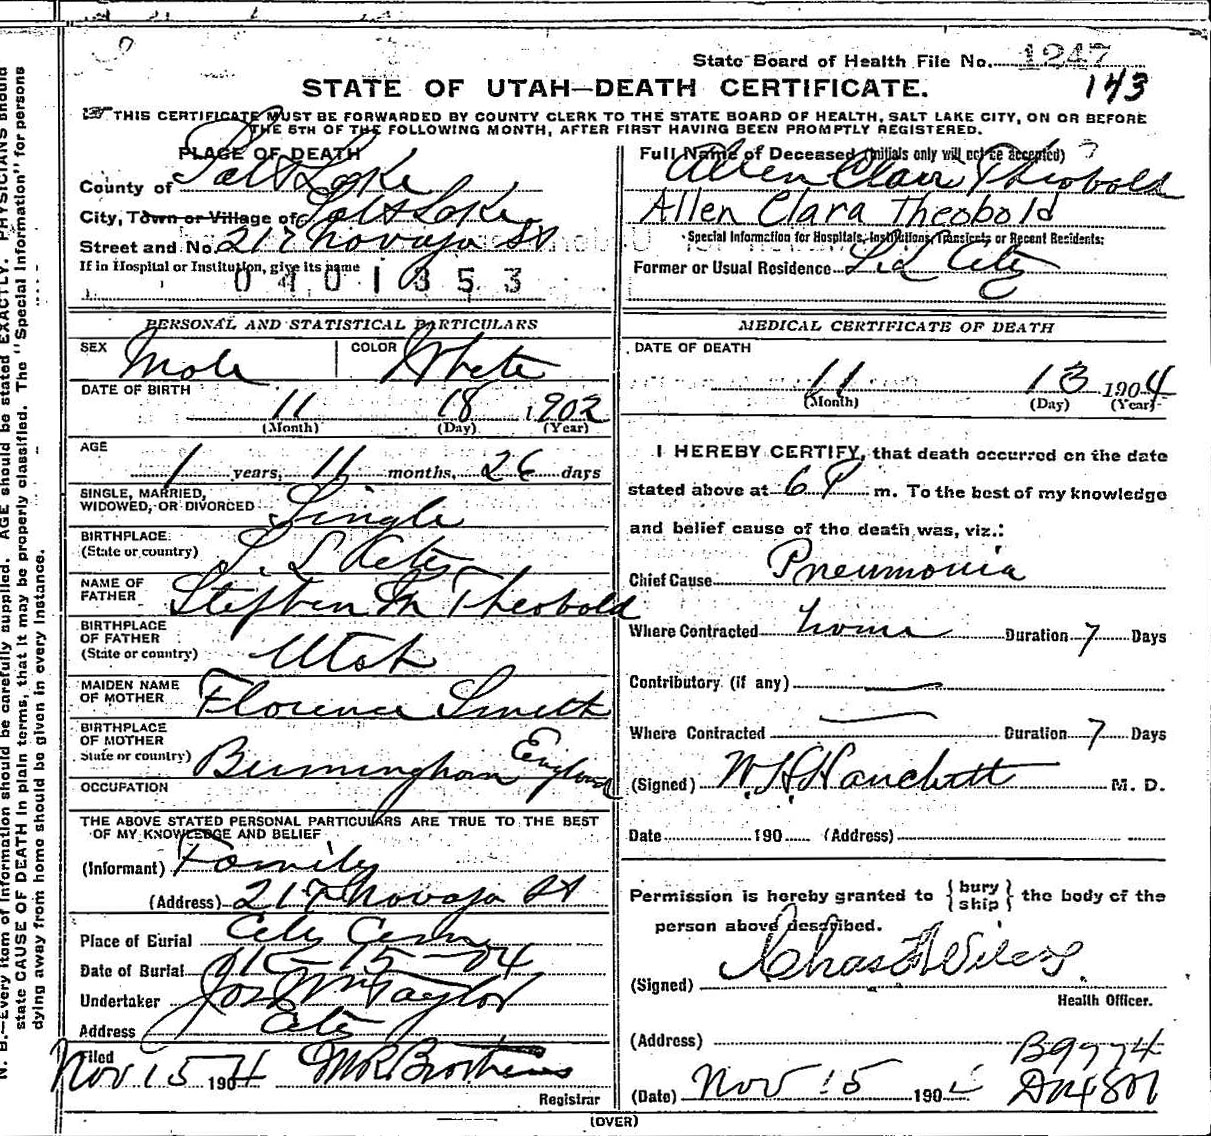 State Board of Health File No. 1247
143
STATE OF UTAH—DEATH CERTIFICATE.
THIS CERTIFICATE MUST BE FORWARDED BY COUNTY CLERK TO THE STATE BOARD OF HEALTH, SALT LAKE CITY, ON OR BEFORE
THE 5TH OF THE FOLLOWING MONTH, AFTER FIRST HAVING BEEN PROMPTLY REGISTERED.
PLACE OF DEATH
County of Salt Lake
City, Town or Village of Salt Lake
Street and No. 217 Navajo St
If in Hospital or Institution, give its name
0401353
Full Name of Deceased (Initials only will not be accepted)
Allen Clair Theobold
Allen Clara Theobold
Special Information for Hospitals, Institutions, Transients or Recent Residents:
Former or Usual Residence City
PERSONAL AND STATISTICAL PARTICULARS
SEX Male
COLOR White
DATE OF BIRTH
11 18 1902
(Month) (Day) (Year)
AGE
1 years, 11 months, 26 days
SINGLE, MARRIED,
WIDOWED, OR DIVORCED Single
BIRTHPLACE
(State or country) S. L City
NAME OF
FATHER Stephen M Theobold
BIRTHPLACE
OF FATHER
(State or country) Utah
MAIDEN NAME
OF MOTHER Florence Smith
BIRTHPLACE
OF MOTHER
State or country) Birmingham England
OCCUPATION
THE ABOVE STATED PERSONAL PARTICULARS ARE TRUE TO THE BEST
OF MY KNOWLEDGE AND BELIEF
(Informant) Family
(Address) 217 Navajo St
Place of Burial City Cem
Date of Burial 11-15-04
Undertaker Jos Wm Taylor
Address City
Filed
Nov 15 1904 M R Brothers
Registrar
MEDICAL CERTIFICATE OF DEATH
DATE OF DEATH
11 13 1904
(Month) (Day) (Year)
I HEREBY CERTIFY, that death occurred on the date
stated above at 6 P m. To the best of my knowledge
and belief cause of the death was, viz.:
Chief Cause Pneumonia
Where Contracted home Duration 7 Days
Contributory (if any) —
Where Contracted — Duration 7 Days
(Signed) W. H. Hanchett M. D.
Date 190 (Address)
Permission is hereby granted to {bury ship} the body of the
person above described.
(Signed) Chas Wilcox
Health Officer.
(Address)
B9774
(Date) Nov 15 190
D4801
(OVER)
N. B.—Every item of information should be carefully supplied. AGE should be stated EXACTLY. PHYSICIANS should
state CAUSE OF DEATH in plain terms, that it may be properly classified. The "Special Information" for persons
dying away from home should be given in every instance.